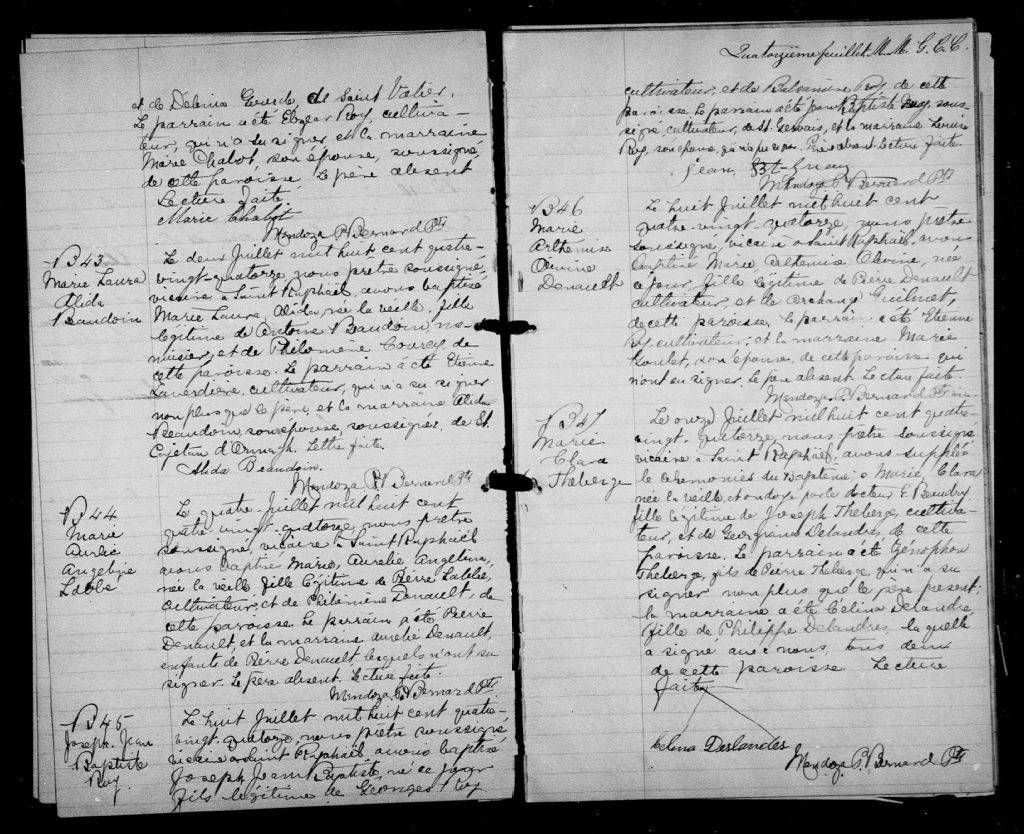 et de Delvina        de Saint Valier.
Le parrain a été Elzéar Roy, cultiva-
teur, qui n'a su signer et la marraine
Marie Chabot, son épouse, soussigné,
de cette paroisse Le père absent
Lecture faite
Marie Chabot
Mendoza P. Bernard Ptr
B343
Marie Laura
Alida
Beaudoin
Le deux Juillet mil huit cent quatre-
vingt-quatorze, nous prêtre soussigné,
vicaire à Saint Raphaël, avons baptisé
Marie Laura Alida née la veille, fille
légitime de Antoine Beaudoin, me-
nuisier, et de Philomène Courcy, de
cette paroisse. Le parrain a été Etienne
Laverdiere, cultivateur, qui n'a su signer
non plus que le père, et la marraine Alida
Beaudoin, son épouse, soussigné, de St.
Cajetan d'Armagh. Lecture faite.
Alida Beaudoin.
Mendoza P. Bernard Ptr
B344
Marie
Aurélie
Angeline
Labbé
Le quatre Juillet mil huit cent
quatre vingt-quatorze, nous prêtre
soussigné, vicaire à Saint Raphaël
avons baptisé Marie, Aurélie Angelina,
née la veille, fille légitime de Pierre Labbé,
cultivateur, et de Philomène Denault, de
cette paroisse. Le parrain a été Pierre
Denault, et la marraine Aurélie Denault,
enfants de Pierre Denault, lesquels n'ont su
signer. Le père absent. Lecture faite.
Mendoza P. Bernard Ptr.
B345
Joseph Jean
Baptiste
Roy.
Le huit Juillet mil huit cent quatre-
vingt-quatorze, nous prêtre soussigné,
vicaire à Saint Raphaël avons baptisé
Joseph Jean Baptiste, né ce jour
fils légitime de Georges Roy
Quatorzième feuillet. M. M. G. C. C.
cultivateur, et de        Roy de cette
paroisse. Le parrain a été Jean Baptiste Guay, sous-
signé cultivateur, de St. Gervais, et la marraine Louise
Roy, son épouse, qui n'a pu signer. Père absent. Lecture faite.
Jean Bt Guay
Mendoza P. Bernard Ptr
B346
Marie
Arthemise
Alvine
Denault
Le huit Juillet mil huit cent
quatre vingt-quatorze, nous prêtre
soussigné, vicaire à Saint Raphaël, avons
baptisé Marie Arthemise Alvine, née
ce jour, fille légitime de Pierre Denault
cultivateur, et de Archange Guilmet,
de cette paroisse. Le parrain a été Etienne
Roy, cultivateur; et la marraine Marie
Goulet, son épouse, de cette paroisse qui
n'ont su signer. Le père absent. Lecture faite
Mendoza P. Bernard Ptr
B347
Marie
Clara
Theberge
Le onze Juillet mil huit cent quatre-
vingt-quatorze, nous prêtre soussigné
vicaire à Saint Raphaël, avons suppléé
les cérémonies du Baptême, à Marie, Clara
née la veille, et ondoyé par le docteur E. Beaudry
fille légitime de Joseph Theberge, cultiva-
teur, et de Georgiana Delandres, de cette
paroisse. Le parrain a été Xénophon
Theberge, fils de Pierre Theberge, qui n'a su
signer non plus que le père présent;
la marraine a été Célina Delandres,
fille de Philippe Delandres, laquelle
a signé avec nous, tous deux
de cette paroisse Lecture
faite
Célina Deslandes
Mendoza P. Bernard Ptr